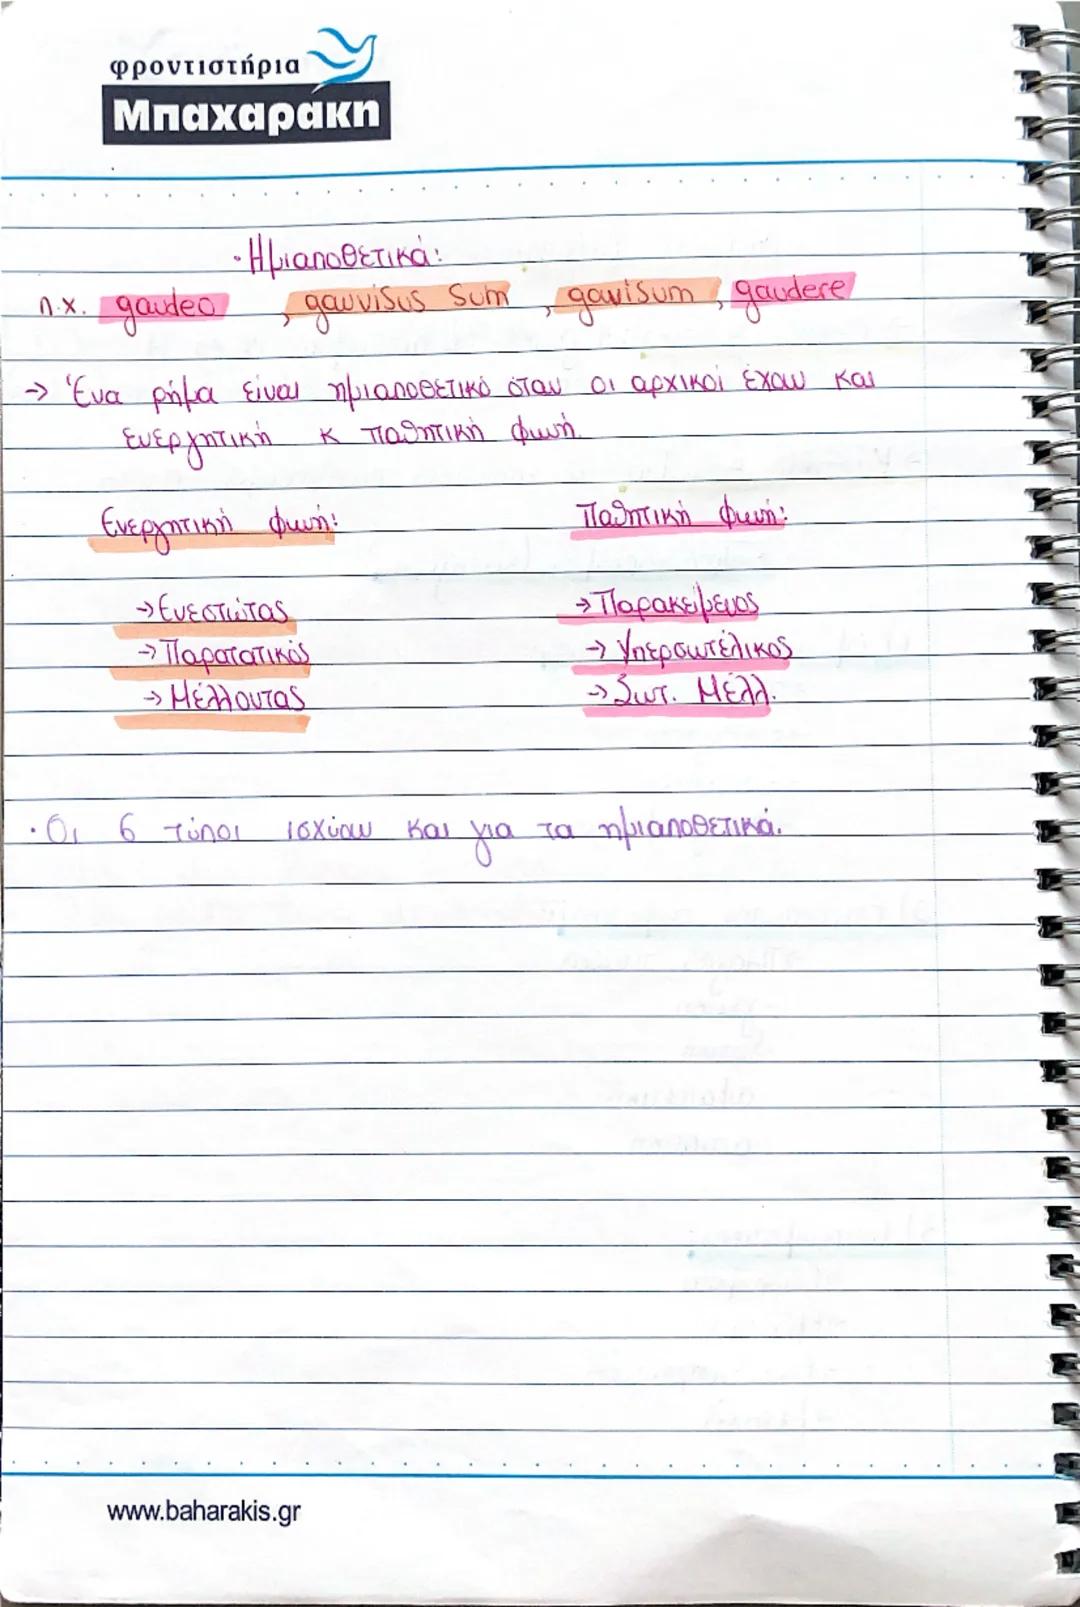 φροντιστήρια
Μπαχαράκη
· Ημιαποθετικά:
π.χ. gaudeo, gavvisus sum, gavisum, gaudere
→ Ένα ρήμα είναι ημιαποθετικό όταν οι αρχικοί έχουν και
ενεργητική κ παθητική φωνή.
Ενεργητική φωνή: Παθητική φωνή:
→ Ενεστώτας → Παρακείμενος
→ Παρατατικός → Υπερσυντέλικος
→ Μέλλοντας → Συντ. Μέλλ.
· Οι 6 τύποι ισχύουν και για τα ημιαποθετικά.
www.baharakis.gr